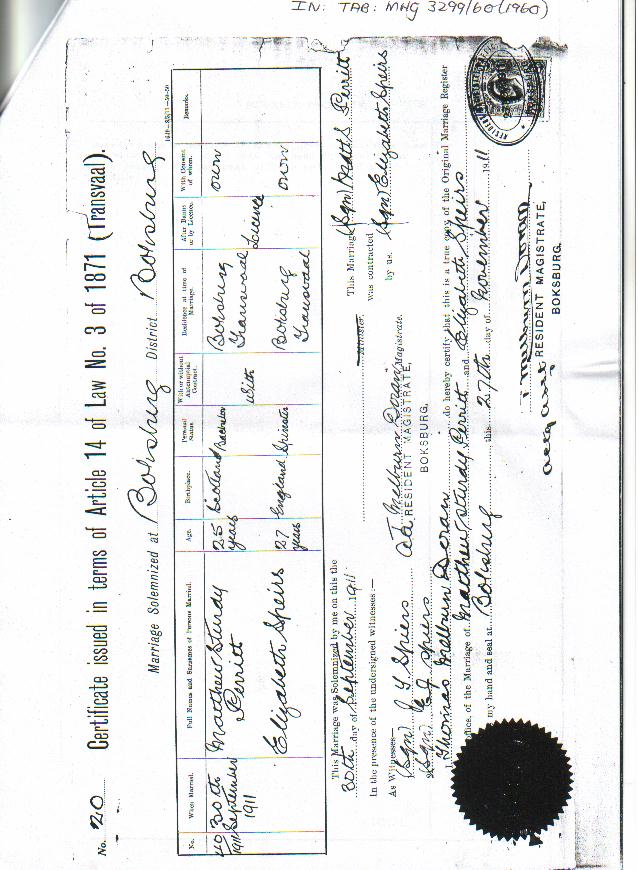 IN: TAB: MHG 3299/60 (1960)
No. 20 Certificate issued in terms of Article 14 of Law No. 3 of 1871 (Transvaal).
Marriage Solemnized at Boksburg District Boksburg
No. When Married. Full Names and Surnames of Persons Married. Age. Birthplace. Personal Status. With or without Antenuptial Contract. Residence at time of Marriage. After Banns or by Licence. With Consent of whom. Remarks.
40 30th Matthew Sturdy 25 Scotland Bachelor Boksburg own
1911 September Perritt years Transvaal
1911 With Licence
Elizabeth Speirs 27 England Spinster Boksburg own
years Transvaal
This Marriage was Solemnized by me on this the
30th day of September 1911
Minister.
In the presence of the undersigned witnesses:—
As Witnesses—
(Sgn) J Y Spiers
(Sgn) C J Spiers
Magistrate.
RESIDENT MAGISTRATE,
BOKSBURG.
This Marriage (Sgn) Matth Perritt
was contracted
by us. (Sgn) Elizabeth Speirs
Thomas Melburn Doran do hereby certify that this is a true copy of the Original Marriage Register
Office, of the Marriage of Matthew Sturdy Perritt and Elizabeth Speirs
my hand and seal at Boksburg this 27th day of November 1911
RESIDENT MAGISTRATE,
BOKSBURG.